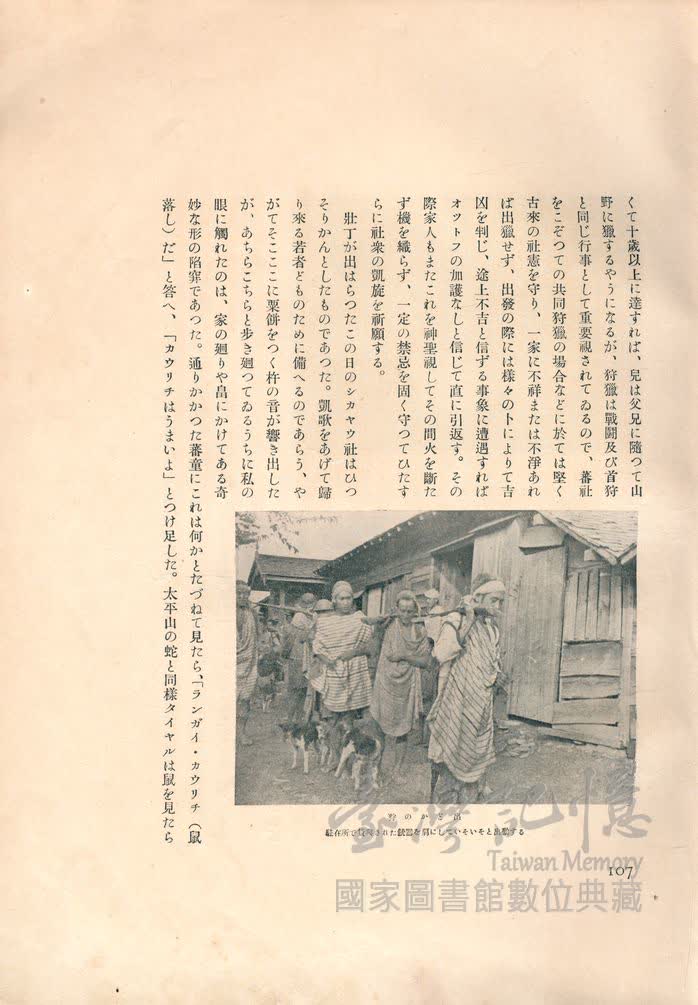 くて十歳以上に達すれば、兒は父兄に隨つて山
野に獵するやうになるが、狩獵は戰鬪及び首狩
と同じ行事として重要視されてゐるので、蕃社
をこぞつての共同狩獵の場合などに於ては堅く
古來の社憲を守り、一家に不祥または不淨あれ
ば出獵せず、出發の際には樣々の卜によりて吉
凶を判じ、途上不吉と信ずる事象に遭遇すれば
オツトフの加護なしと信じて直に引返す。その
際家人もまたこれを神聖視してその間火を斷た
ず機を織らず、一定の禁忌を固く守つてひたす
らに社衆の凱旋を祈願する。
壯丁が出はらつたこの日のシカヤウ社はひつ
そりかんとしたものであつた。凱歌をあげて歸
り來る若者どものために備へるのであらう、や
がてそこここに粟餅をつく杵の音が響き出した
が、あちらこちらと歩き廻つてゐるうちに私の
眼に觸れたのは、家の廻りや畠にかけてある奇
妙な形の陷穽であつた。通りかかつた蕃童にこれは何かとたづねて見たら、「ランガイ・カウリチ(鼠
落し)だ」と答へ、「カウリチはうまいよ」とつけ足した。太平山の蛇と同樣タイヤルは鼠を見たら
狩のかど出
駐在所で貸與された銃器を肩にしていそいそと出動する
107
臺灣記憶
Taiwan Memory
國家圖書館數位典藏